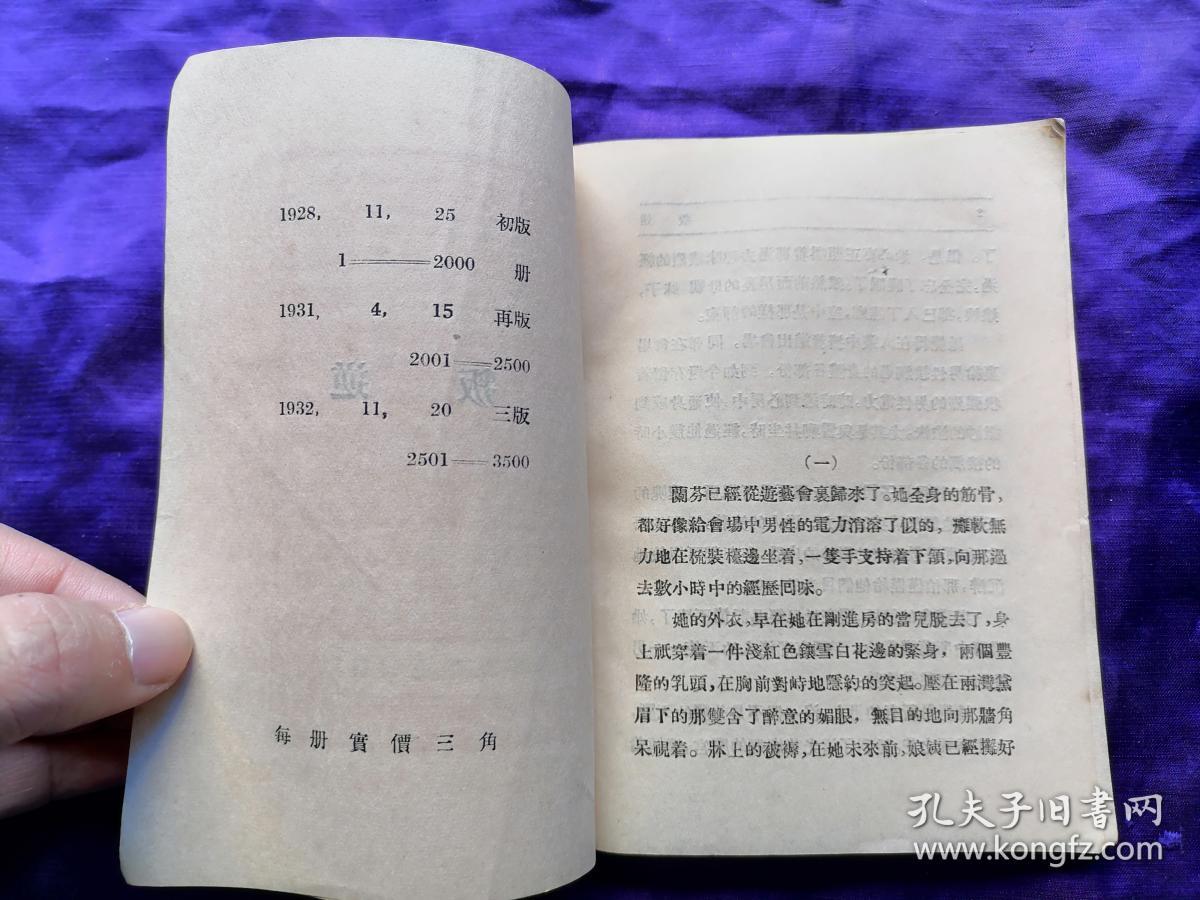 1928, 11, 25 初版
1══2000 册
1931, 4, 15 再版
2001══2500
1932, 11, 20 三版
2501══3500
每册實價三角
(一)
蘭芬已經從遊藝會裏歸來了。她全身的筋骨，
都好像給會場中男性的電力消溶了似的，癱軟無
力地在梳裝檯邊坐着，一隻手支持着下頷，向那過
去數小時中的經歷回味。
她的外衣，早在她在剛進房的當兒脫去了，身
上祇穿着一件淺紅色鑲雪白花邊的緊身，兩個豐
隆的乳頭，在胸前對峙地隱約的突起。壓在兩灣黛
眉下的那雙含了醉意的媚眼，無目的地向那牆角
呆視着。牀上的被褥，在她未來前，娘姨已經攤好
孔夫子旧书网
www.kongfz.com